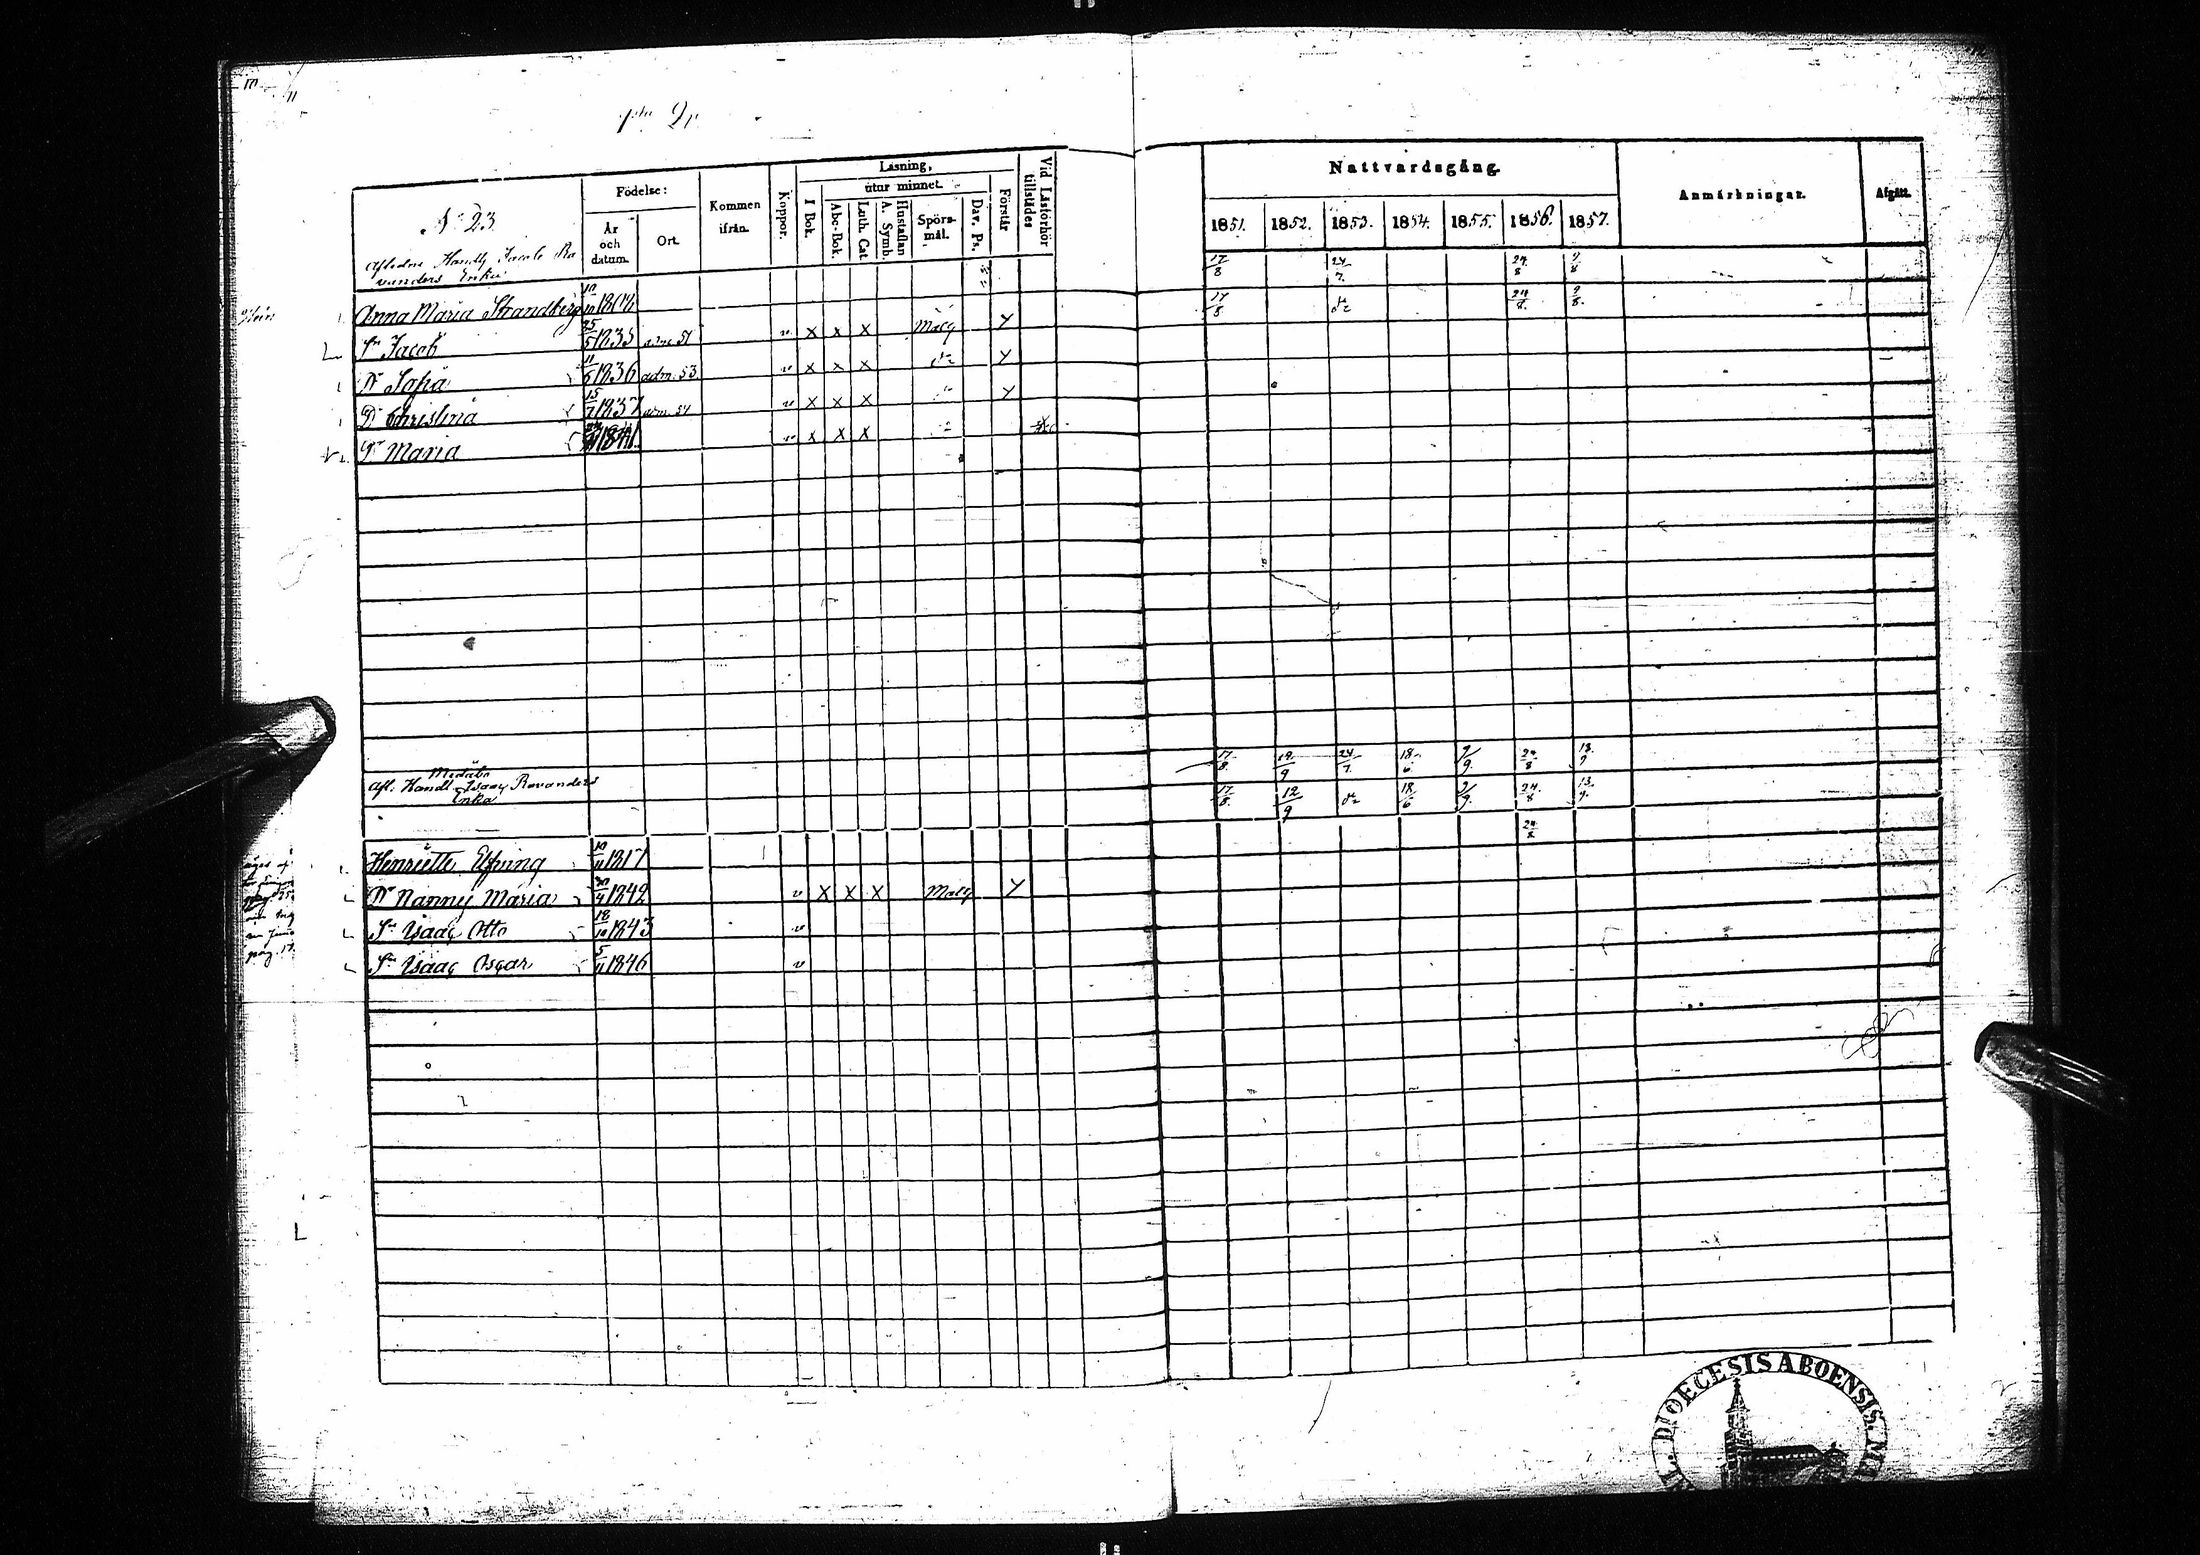 Nattvardsgång.
Anmärkningar.
Afgått.
Läsning,
utur minnet.
Födelse:
År och datum.
Ort.
Kommen ifrån.
Koppor.
I Bok.
Abc-Bok.
Luth. Cat
Hustaflan A. Symb.
Spörsmål.
Dav. Ps.
Förstår
Vid Läsförhör tillstädes
1851. 1852. 1853. 1854. 1855. 1856. 1857.
N° 23
Afledne Handl Jacob Ra
vanders Enka
17/8 24/7 24/8 9/8
Anna Maria Strandberg
17/8 24/8 9/8
Sn Jacob 25/5 1835 v x x x Malg Y
Dr Sofia 11/6 1836 adm. 53 v x x x Y
Dr Christina 15/7 1837 v x x x Y
Dr Maria 1841 v x x x
Medåbo
Afl. Handl. Isaac Ravanders
Enka
17/8 12/9 24/7 18/6 9/9 24/8 13/9
17/8 12/9 18/6 9/9 24/8 13/9
24/8
Henriette Elfving 10/11 1817
Dr Nanny Maria 1842 v X X X Malg Y
Sn Isaac Otto 18/10 1843 v
Sn Isaac Oscar 5/11 1846 v
pag. 17
DIOECESIS ABOENSIS.